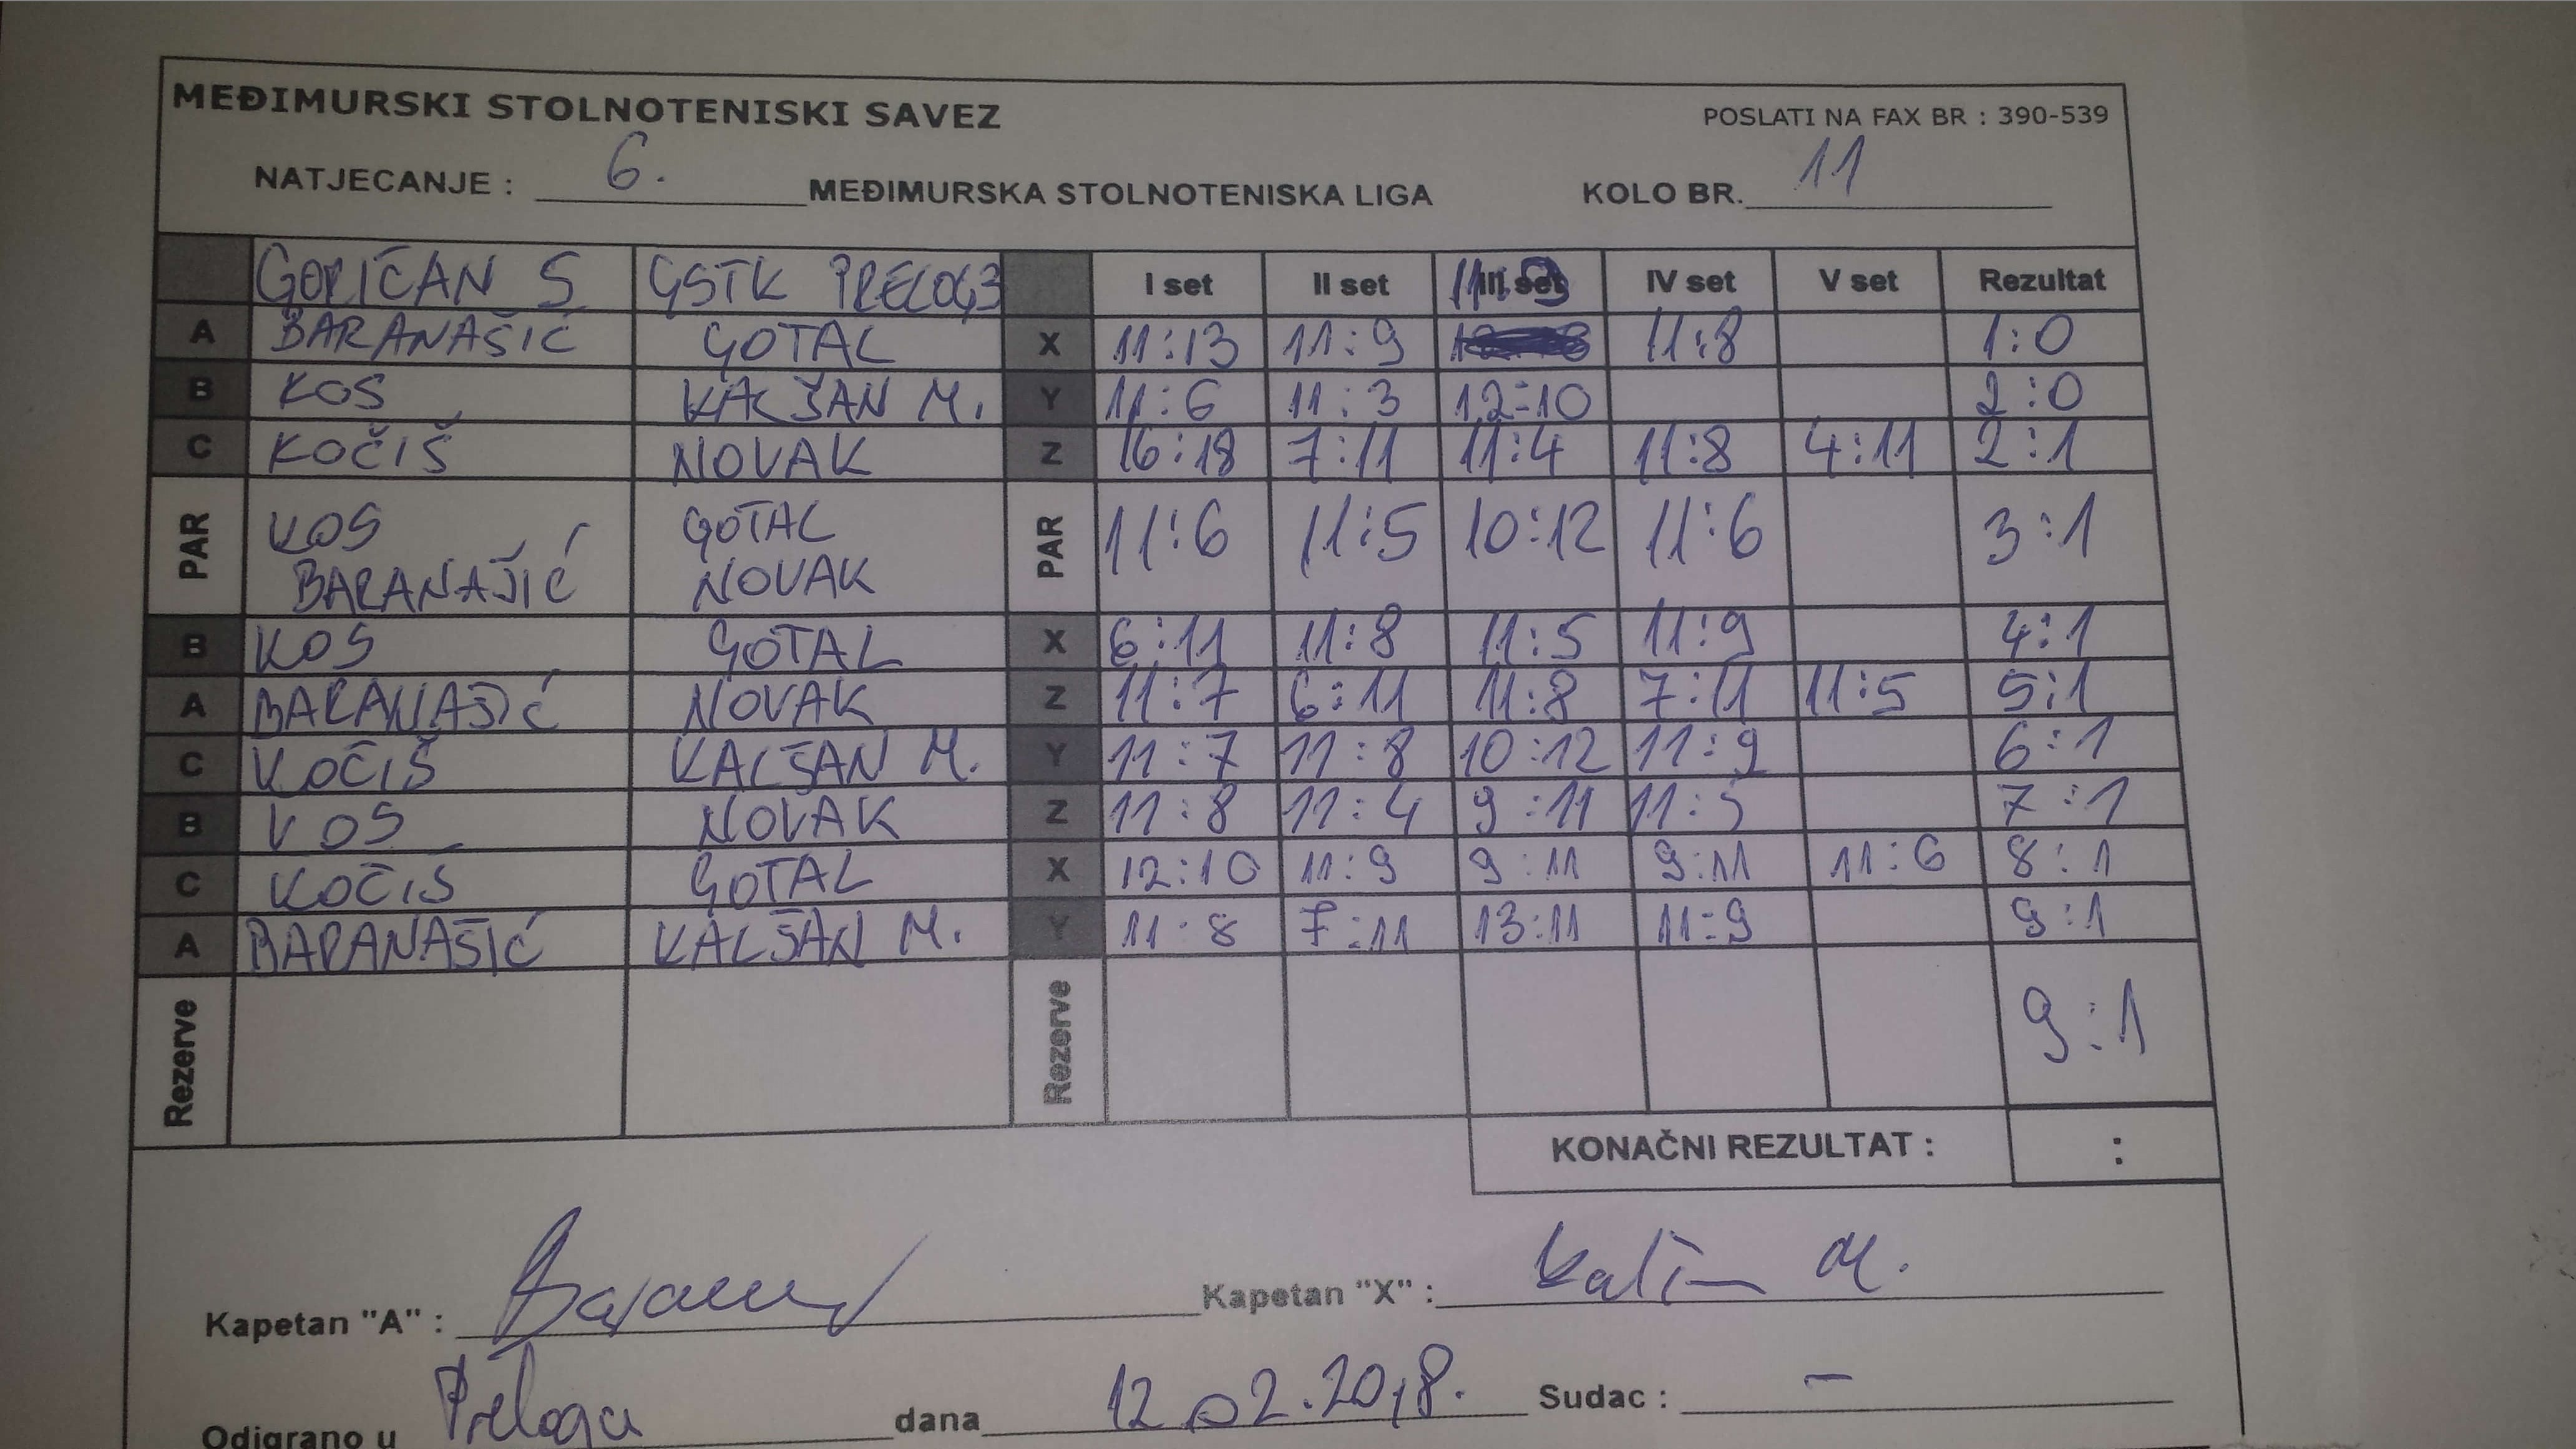 MEĐIMURSKI STOLNOTENISKI SAVEZ POSLATI NA FAX BR : 390-539
NATJECANJE : 6. MEĐIMURSKA STOLNOTENISKA LIGA KOLO BR. 11
GORIČAN 5 GSTK PRELOG 3 I set II set III set IV set V set Rezultat
A BARANAŠIĆ GOTAL X 11:13 11:9 11:9 11:8 1:0
B KOS KALŠAN M. Y 11:6 11:3 12:10 2:0
C KOČIŠ NOVAK Z 16:18 7:11 11:4 11:8 4:11 2:1
PAR KOS GOTAL PAR 11:6 11:5 10:12 11:6 3:1
BARANAŠIĆ NOVAK
B KOS GOTAL X 6:11 11:8 11:5 11:9 4:1
A BARANAŠIĆ NOVAK Z 11:7 6:11 11:8 7:11 11:5 5:1
C KOČIŠ KALŠAN M. Y 11:7 11:8 10:12 11:9 6:1
B KOS NOVAK Z 11:8 11:4 9:11 11:5 7:1
C KOČIŠ GOTAL X 12:10 11:9 9:11 9:11 11:6 8:1
A BARANAŠIĆ KALŠAN M. Y 11:8 7:11 13:11 11:9 9:1
Rezerve Rezerve 9:1
KONAČNI REZULTAT : :
Kapetan "A" : Kapetan "X" : M.
Odigrano u Prelogu dana 12.02.2018. Sudac : –